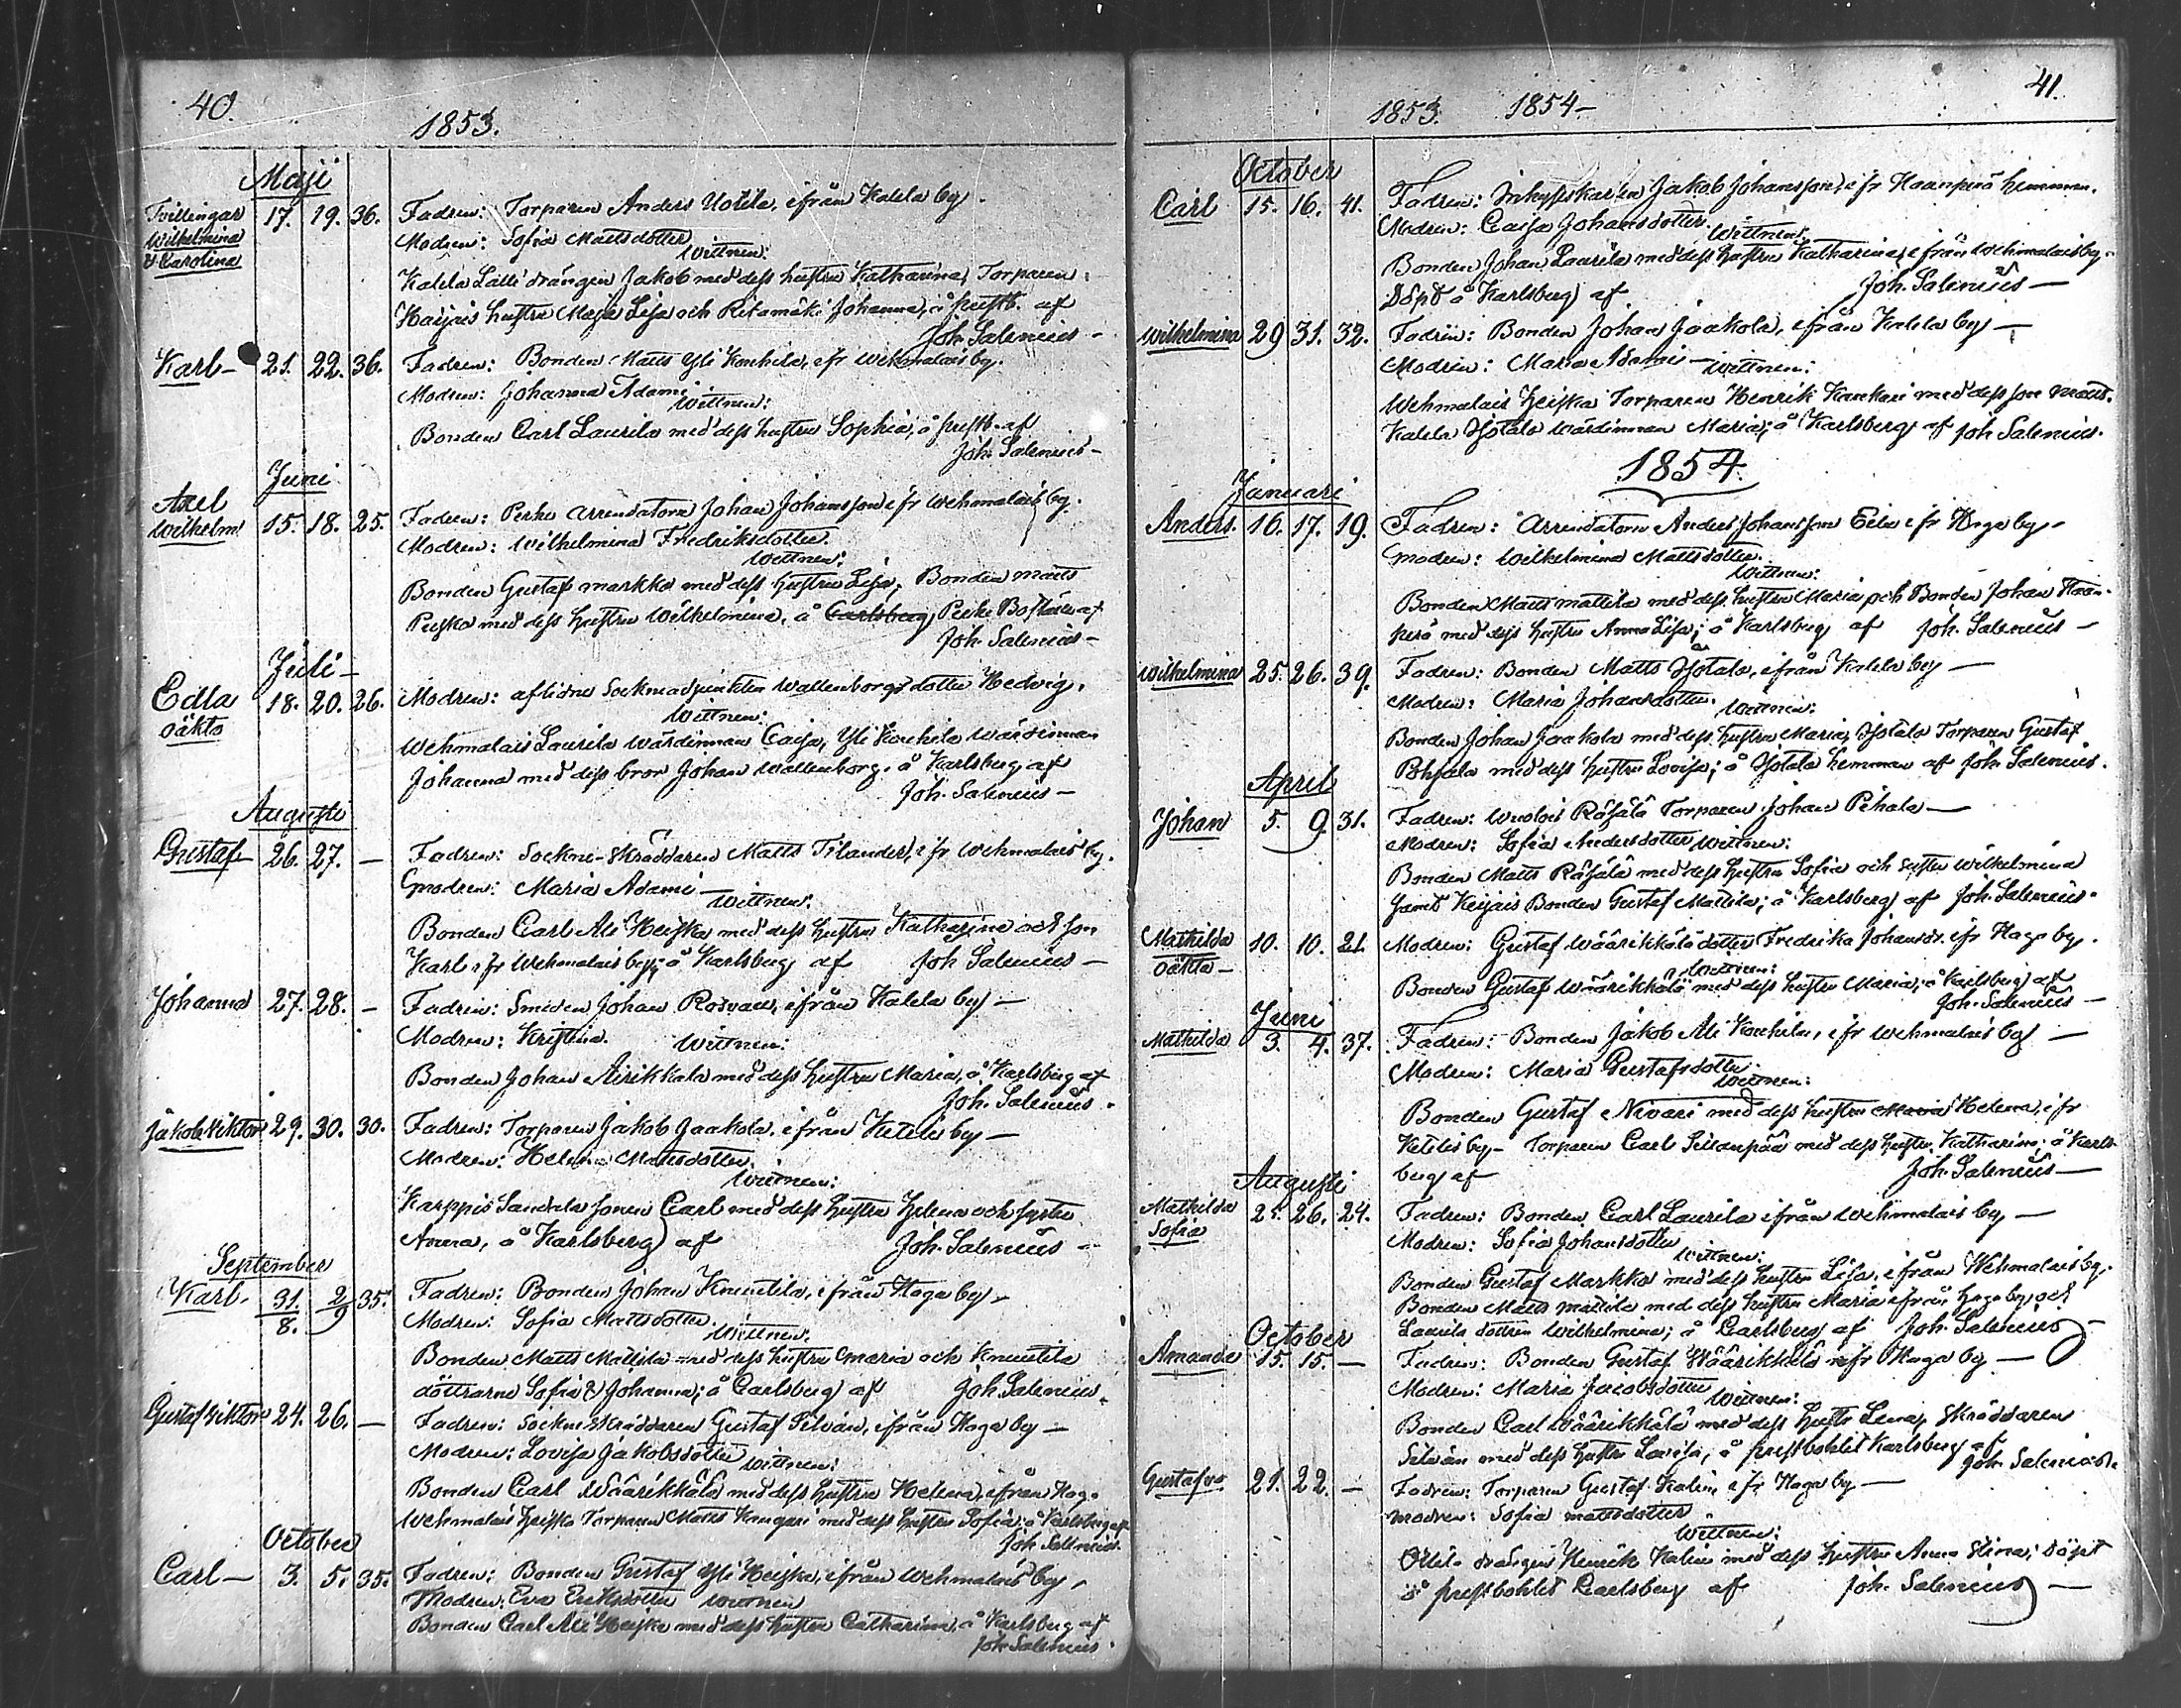 40.
1853.
Maji
Tvillingar 17. 19. 36. Fadren: Torparen Anders Uotila, ifrån Kalela by.
Wilhelmina Modren: Sofia Mattsdotter
& Karolina Wittnen:
Kalela Lalli drängen Jakob med dess hustru Katharina, Torparen
Haijais hustru Maja Lisa och Ritamäki Johanna, å prestb. af
Joh. Salenius –
Karl – 21. 22. 36. Fadren: Bonden Matts Yli Kouhila, ifr Wehmalais by.
Modren: Johanna Adami
Wittnen:
Bonden Carl Laurila med dess hustru Sophia, å prestb. af
Joh. Salenius –
Juni
Axel
Wilhelm 15. 18. 25. Fadren: Perho arrendatorn Johan Johansson ifr Wehmalais by.
Modren: Wilhelmina Fredriksdotter
Wittnen:
Bonden Gustaf Markko med dess hustru Lisa, Bonden Matts
med dess hustru Wilhelmina, å Carlsberg, Perho Boställe af
Joh. Salenius –
Juli –
Edla 18. 20. 26. Modren: aflidne Sockneadjunkten Wallenborgs dotter Hedvig.
oäkta Wittnen:
Wehmalais Laurila wärdinnan Caisa, Yli Kouhila wärdinnan
Johanna med dess bror Johan Wallenborg, å Karlsberg af
Joh. Salenius –
Augusti
Gustaf 26. 27. – Fadren: Sockne-skräddaren Matts Tilander, ifr Wehmalais by.
Modren: Maria Adami –
Wittnen:
Bonden Carl Ali Heiska med dess hustru Katharina och son
Karl ifr Wehmalais by, å Karlsberg af Joh Salenius –
Johanna 27. 28. – Fadren: Smeden Johan Rosvall, ifrån Kalela by –
Modren: Kristina. Wittnen:
Bonden Johan Airikkala med dess hustru Maria, å Karlsberg af
Joh. Salenius.
Jakob Viktor 29. 30. 30. Fadren: Torparen Jakob Jaakola, ifrån Ketelis by –
Modren: Helena Mattsdotter.
Wittnen:
Karppis Sandala sonen Carl med dess hustru Helena och syster
Anna, å Karlsberg af Joh. Salenius –
September
Karl. 31. 2 35. Fadren: Bonden Johan Knuutila, ifrån Haga by –
8. 9 Modren: Sofia Mattsdotter.
Wittnen:
Bonden Matts Mattila med dess hustru Maria och Knuutila
döttrarne Sofia & Johanna, å Carlsberg af Joh. Salenius.
Gustaf Viktor 24. 26. – Fadren: Sockneskräddaren Gustaf Silvän, ifrån Haga by –
Modren: Lovisa Jakobsdotter Wittnen:
Bonden Carl Wäärikkälä med dess hustru Helena, ifrån Haga
Wehmalais Heiska Torparen Matts Kangari med dess hustru Sofia, å Karlsberg af
Joh Salenius.
October
Carl – 3. 5. 35. Fadren: Bonden Gustaf Yli Heiska, ifrån Wehmalais by,
Modren: Eva Eriksdotter Wittnen
Bonden Carl Ali Heiska med dess hustru Catharina, å Karlsberg af
Joh Salenius.
41.
1853. 1854 –
October
Carl 15. 16. 41. Fadren: Inhyseskarlen Jakob Johansson, ifr Haanperä hemman.
Modren: Caisa Johansdotter. Wittnen:
Bonden Johan Laurila med dess hustru Katharina, ifrån Wehmalais by –
Döpt å Karlsberg af Joh. Salenius –
Wilhelmina 29 31. 32. Fadren: Bonden Johan Jaakola, ifrån Kalela by –
Modren: Maria Adami – Wittnen:
Wehmalais Heiska Torparen Henrik Kankari med dess son Matts.
Kalela Ojotala wärdinnan Maria, å Karlsberg af Joh Salenius.
1854.
Januari
Anders. 16. 17. 19. Fadren: Arrendatorn Anders Johansson Eila ifr Haga by –
Modren: Wilhelmina Mattsdotter.
Wittnen:
Bonden Matts Mattila med dess hustru Maria och Bonden Johan Haan-
perä med dess hustru Anna Lisa, å Karlsberg af Joh. Salenius –
Wilhelmina 25. 26. 39. Fadren: Bonden Matts Ojotala, ifrån Kalela by –
Modren: Maria Johansdotter. Wittnen:
Bonden Johan Jaakola med dess hustru Maria, Ojotala Torparen Gustaf
Pohjala med dess hustru Lovisa; å Ojotala hemman af Joh Salenius.
April
Johan 5. 9. 31. Fadren: Räjälä Torparen Johan Pihala –
Modren: Sofia Andersdotter Wittnen:
Bonden Matts Räjälä med dess hustru Sofia och syster Wilhelmina
samt Keijais Bonden Gustaf Mattila, å Karlsberg af Joh. Salenius.
Mathilda 10. 10. 21. Modren: Gustaf Wäärikkälä dotter Fredrika Johansdr. ifr Haga by.
oäkta – Wittnen:
Bonden Gustaf Wäärikkälä med dess hustru Maria, å Karlsberg af
Joh. Salenius –
Juni
Mathilda 3. 4. 37. Fadren: Bonden Jakob Ali Kouhila, ifr Wehmalais by –
Modren: Maria Gustafsdotter.
Wittnen:
Bonden Gustaf Nivari med dess hustru Maria Helena, ifr
Ketelis by – Torparen Carl Sillanpää med dess hustru Katharina; å Karls
berg af Joh. Salenius –
Augusti
Mathilda 25. 26. 24. Fadren: Bonden Carl Laurila ifrån Wehmalais by –
Sofia Modren: Sofia Johansdotter
Wittnen:
Bonden Gustaf Markko med dess hustru Lisa, ifrån Wehmalais by.
Bonden Matts Mattila med dess hustru Maria ifrån Haga by och
Laurila dottren Wilhelmina; å Carlsberg af Joh. Salenius –
October
Amanda 15. 15. – Fadren: Bonden Gustaf Wäärikkälä ifr Haga by –
Modren: Maria Jacobsdotter Wittnen:
Bonden Carl Wäärikkälä med dess hustr Lena, Skräddaren
Silvän med dess hustru Lovisa, å prestbohlet Karlsberg af
Joh. Salenius.
Gustafva 21. 22. – Fadren: Torparen Gustaf Kalin, ifr Haga by –
Modren: Sofia Mattsdotter
Wittnen:
drängen Henrik Kalin med dess hustru Anna Stina; döpt
å prestbohlet Carlsberg af Joh. Salenius –